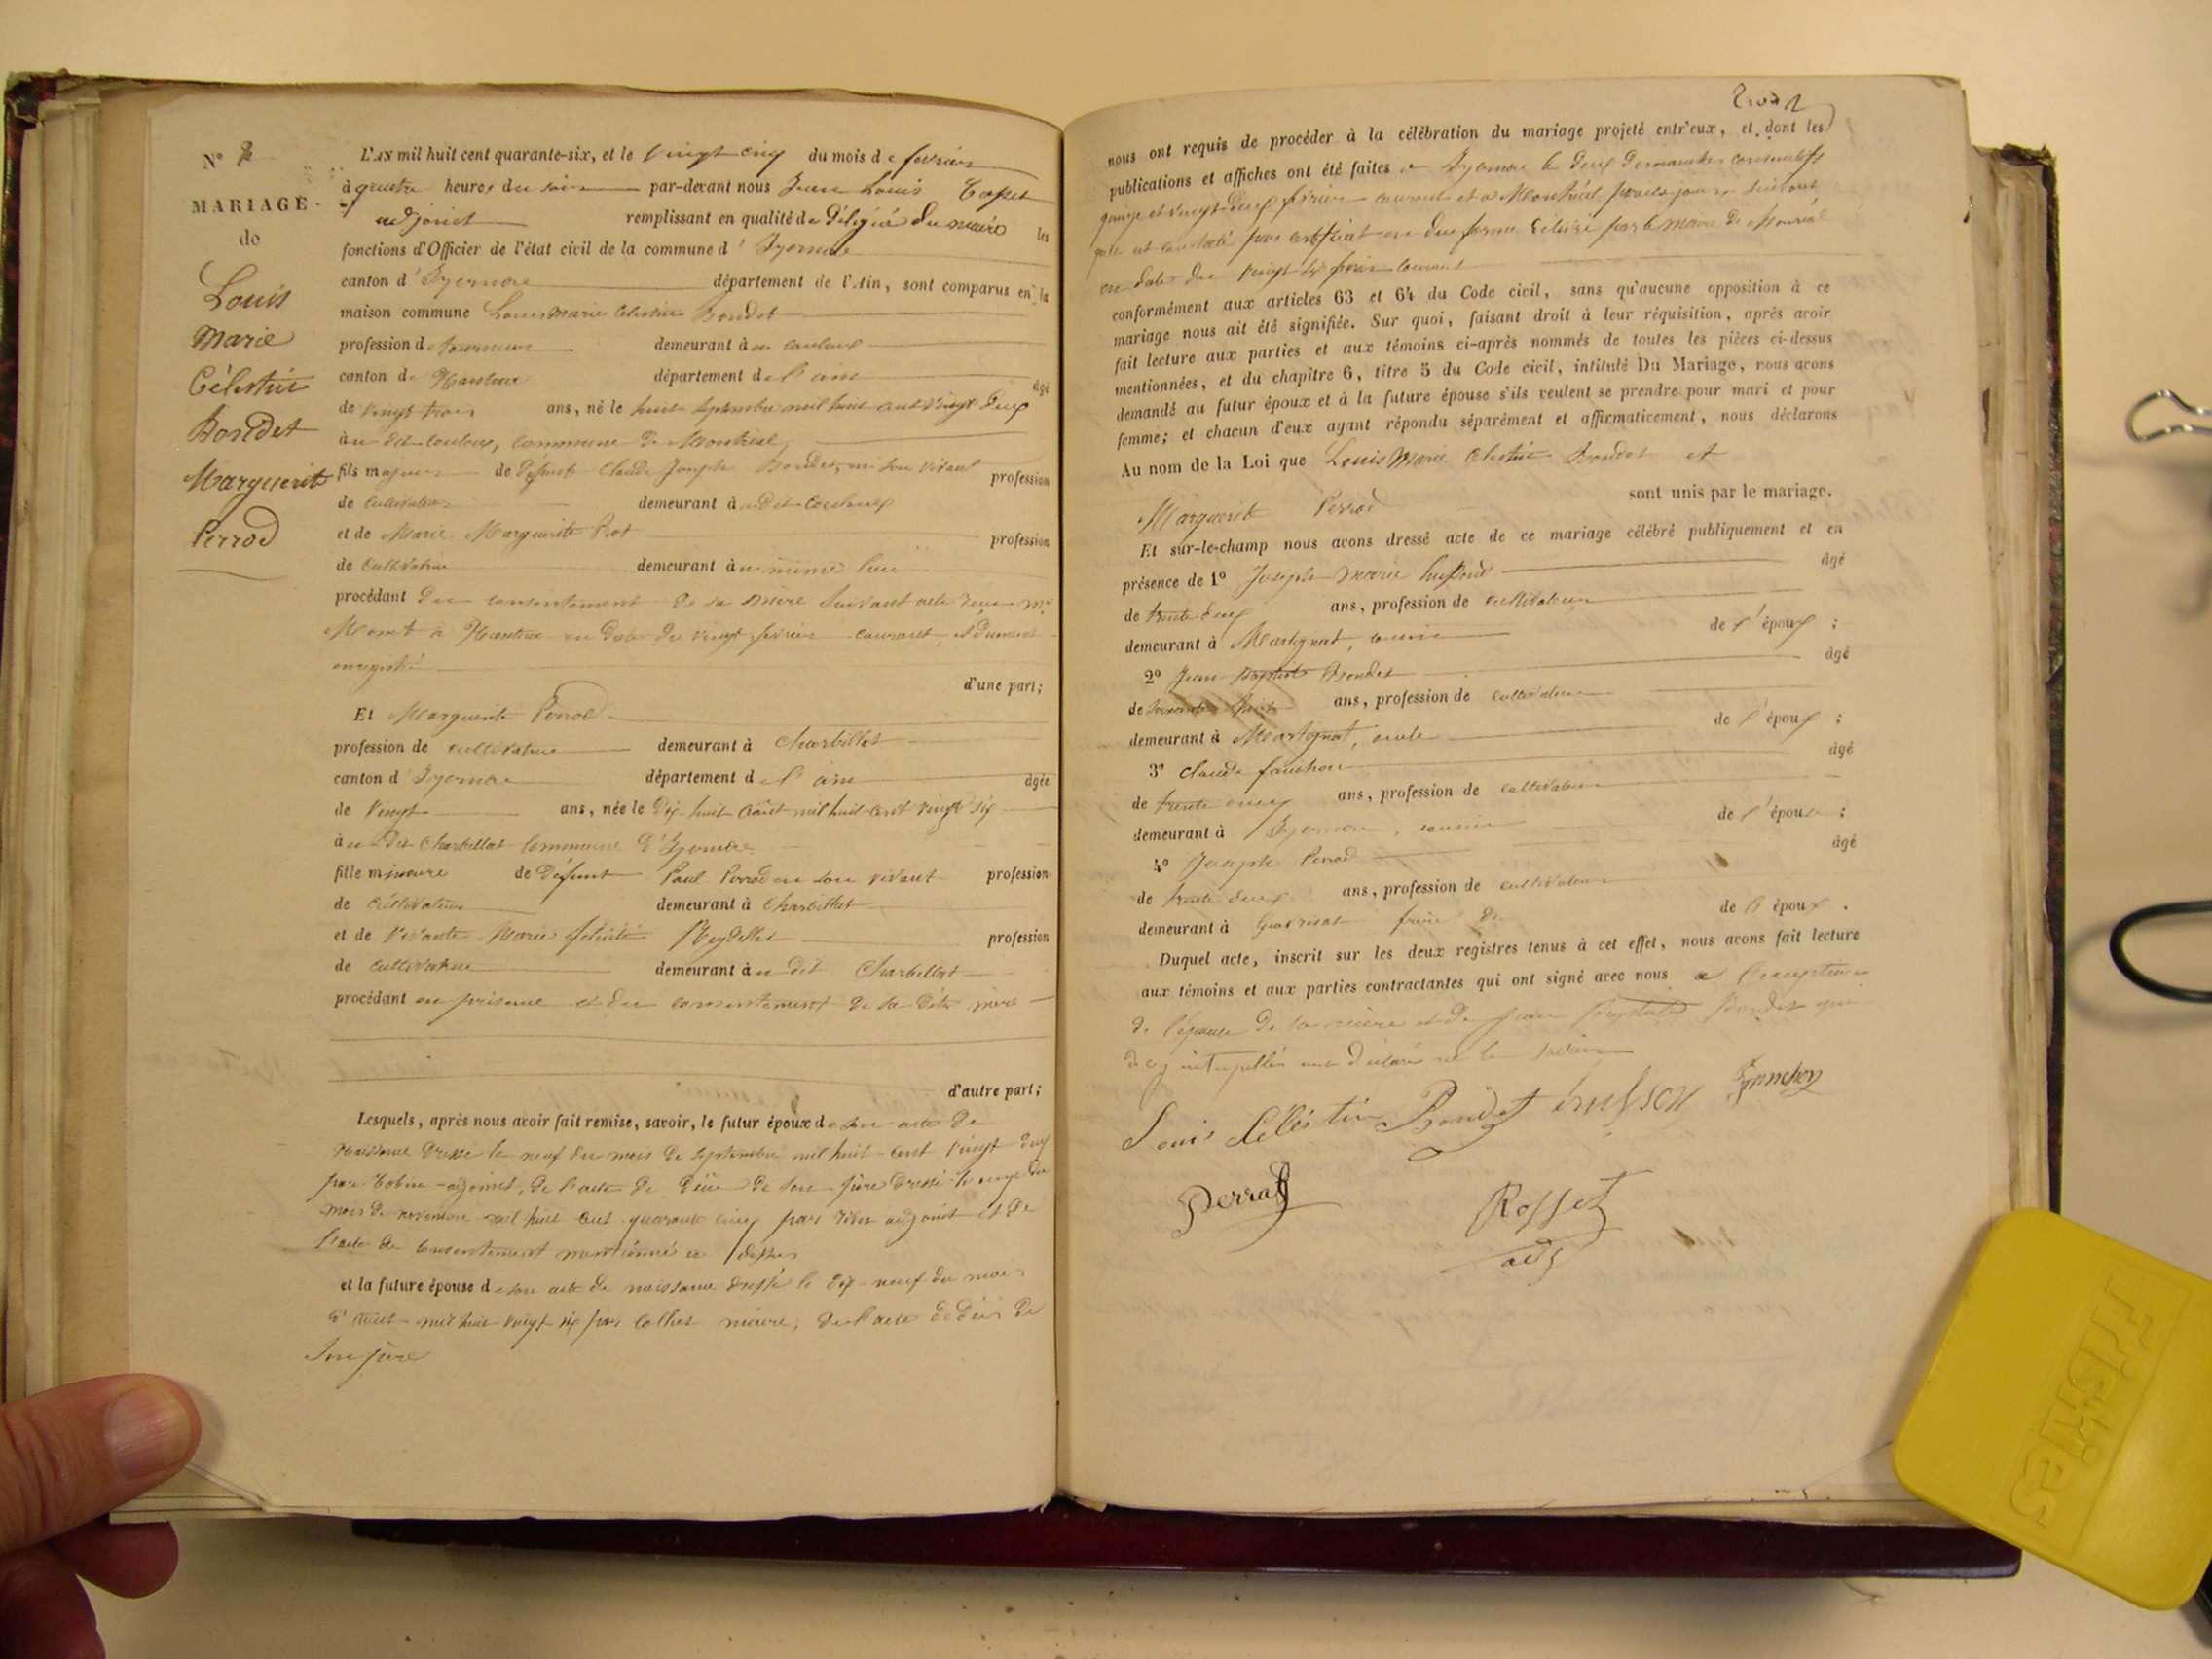 N° 2
MARIAGE
de
Louis
Marie
Célestin
Bondet
Marguerite
Perrod
L'AN mil huit cent quarante-six, et le vingt cinq du mois de février
à quatre heures du soir par-devant nous Jean Louis Rosset
adjoint remplissant en qualité de délégué du maire les
fonctions d'Officier de l'état civil de la commune d'Izernore
canton d'Izernore département de l'Ain, sont comparus en la
maison commune Louis Marie Célestin Bondet
profession de tourneur demeurant à
canton de Nantua département de l'ain âgé
de vingt trois ans, né le huit septembre mil huit cent vingt deux
au dit commune de Montréal,
fils majeur de défunt Claude Joseph Bondet, en son vivant profession
de cultivateur demeurant au dit
et de Marie Marguerite profession
de cultivatrice demeurant au même lieu
procédant du consentement de sa mère suivant acte reçu Me
à Nantua en date du vingt février courant, et dument
enregistré
d'une part;
Et Marguerite Perrod
profession de cultivatrice demeurant à Charbillat
canton d'Izernore département de l'ain âgée
de vingt ans, née le dix-huit août mil huit cent vingt six
au dit Charbillat commune d'Izernore
fille mineure de défunt Paul Perrod en son vivant profession
de cultivateur demeurant à Charbillat
et de vivante Marie félicité Reydellet profession
de cultivatrice demeurant au dit Charbillat
procédant en présence et du consentement de sa dite mère
d'autre part;
Lesquels, après nous avoir fait remise, savoir, le futur époux de son acte de
naissance dressé le neuf du mois de septembre mil huit cent vingt deux
par adjoint, de l'acte de décès de son père dressé le onze du
mois de novembre mil huit cent quarante cinq par adjoint et de
l'acte de consentement mentionné ci dessus
et la future épouse de son acte de naissance dressé le dix-neuf du mois
d'août mil huit vingt six par maire, de l'acte de décès de
son père
nous ont requis de procéder à la célébration du mariage projeté entr'eux, et dont les
publications et affiches ont été faites à Izernore les deux dimanches consécutifs
quinze et vingt-deux février courant et à Montréal pareils jours suivant
que est constaté par certificat en due forme délivré par le maire de Montréal
en date du courant
conformément aux articles 63 et 64 du Code civil, sans qu'aucune opposition à ce
mariage nous ait été signifiée. Sur quoi, faisant droit à leur réquisition, après avoir
fait lecture aux parties et aux témoins ci-après nommés de toutes les pièces ci-dessus
mentionnées, et du chapitre 6, titre 5 du Code civil, intitulé Du Mariage, nous avons
demandé au futur époux et à la future épouse s'ils veulent se prendre pour mari et pour
femme; et chacun d'eux ayant répondu séparément et affirmativement, nous déclarons
Au nom de la Loi que Louis Marie Célestin Bondet et
Marguerite Perrod sont unis par le mariage.
Et sur-le-champ nous avons dressé acte de ce mariage célébré publiquement et en
présence de 1° Joseph Marie âgé
de trente deux ans, profession de cultivateur
demeurant à Martignat, cousin de l'époux ;
2° Jean Baptiste Bondet âgé
de ans, profession de cultivateur
demeurant à Martignat, oncle de l'époux ;
3° Claude fanchon âgé
de trente ans, profession de cultivateur
demeurant à Izernore, cousin de l'épouse ;
4° Joseph Perrod âgé
de trente deux ans, profession de cultivateur
demeurant à frère de de l'épouse.
Duquel acte, inscrit sur les deux registres tenus à cet effet, nous avons fait lecture
aux témoins et aux parties contractantes qui ont signé avec nous à l'exception
de l'épouse de sa mère et de Jean Baptiste Bondet qui
de ce interpellés ont déclaré ne le savoir
Louis Célestin Bondet fanchon
Perrod Rosset
adj
Friskies